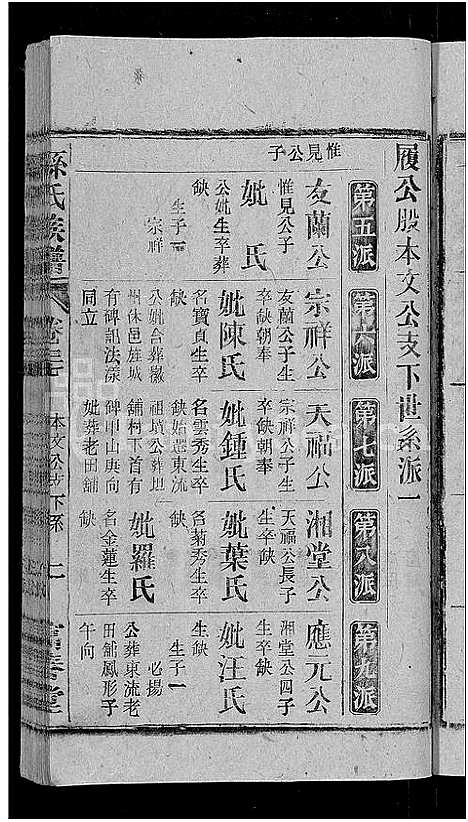 履公股本文公支下世系派一
第五派
第六派
第七派
第八派
第九派
惟見公子
友蘭公
惟見公子
妣 氏
公妣生卒葬
缺
生子一
宗祥
宗祥公
友蘭公子生
卒缺朝奉
妣陳氏
名寶貞生卒
缺
公妣合葬徽
州休邑旌城
有碑記法漾
同立
天福公
宗祥公子生
卒缺朝奉
妣鍾氏
名雲秀生卒
缺始遷東流
祖坑公葬地
舖村下首有
碑甲山庚向
妣葬老田舖
湘堂公
天福公長子
生卒缺
妣葉氏
名菊秀生卒
缺
妣羅氏
名金蓮生卒
缺
應元公
湘堂公四子
生卒缺
妣汪氏
生缺
生子一
必揚
公葬東流老
田舖鳳形子
午向
孫氏族譜
卷之
本文公支下系
二
富春堂